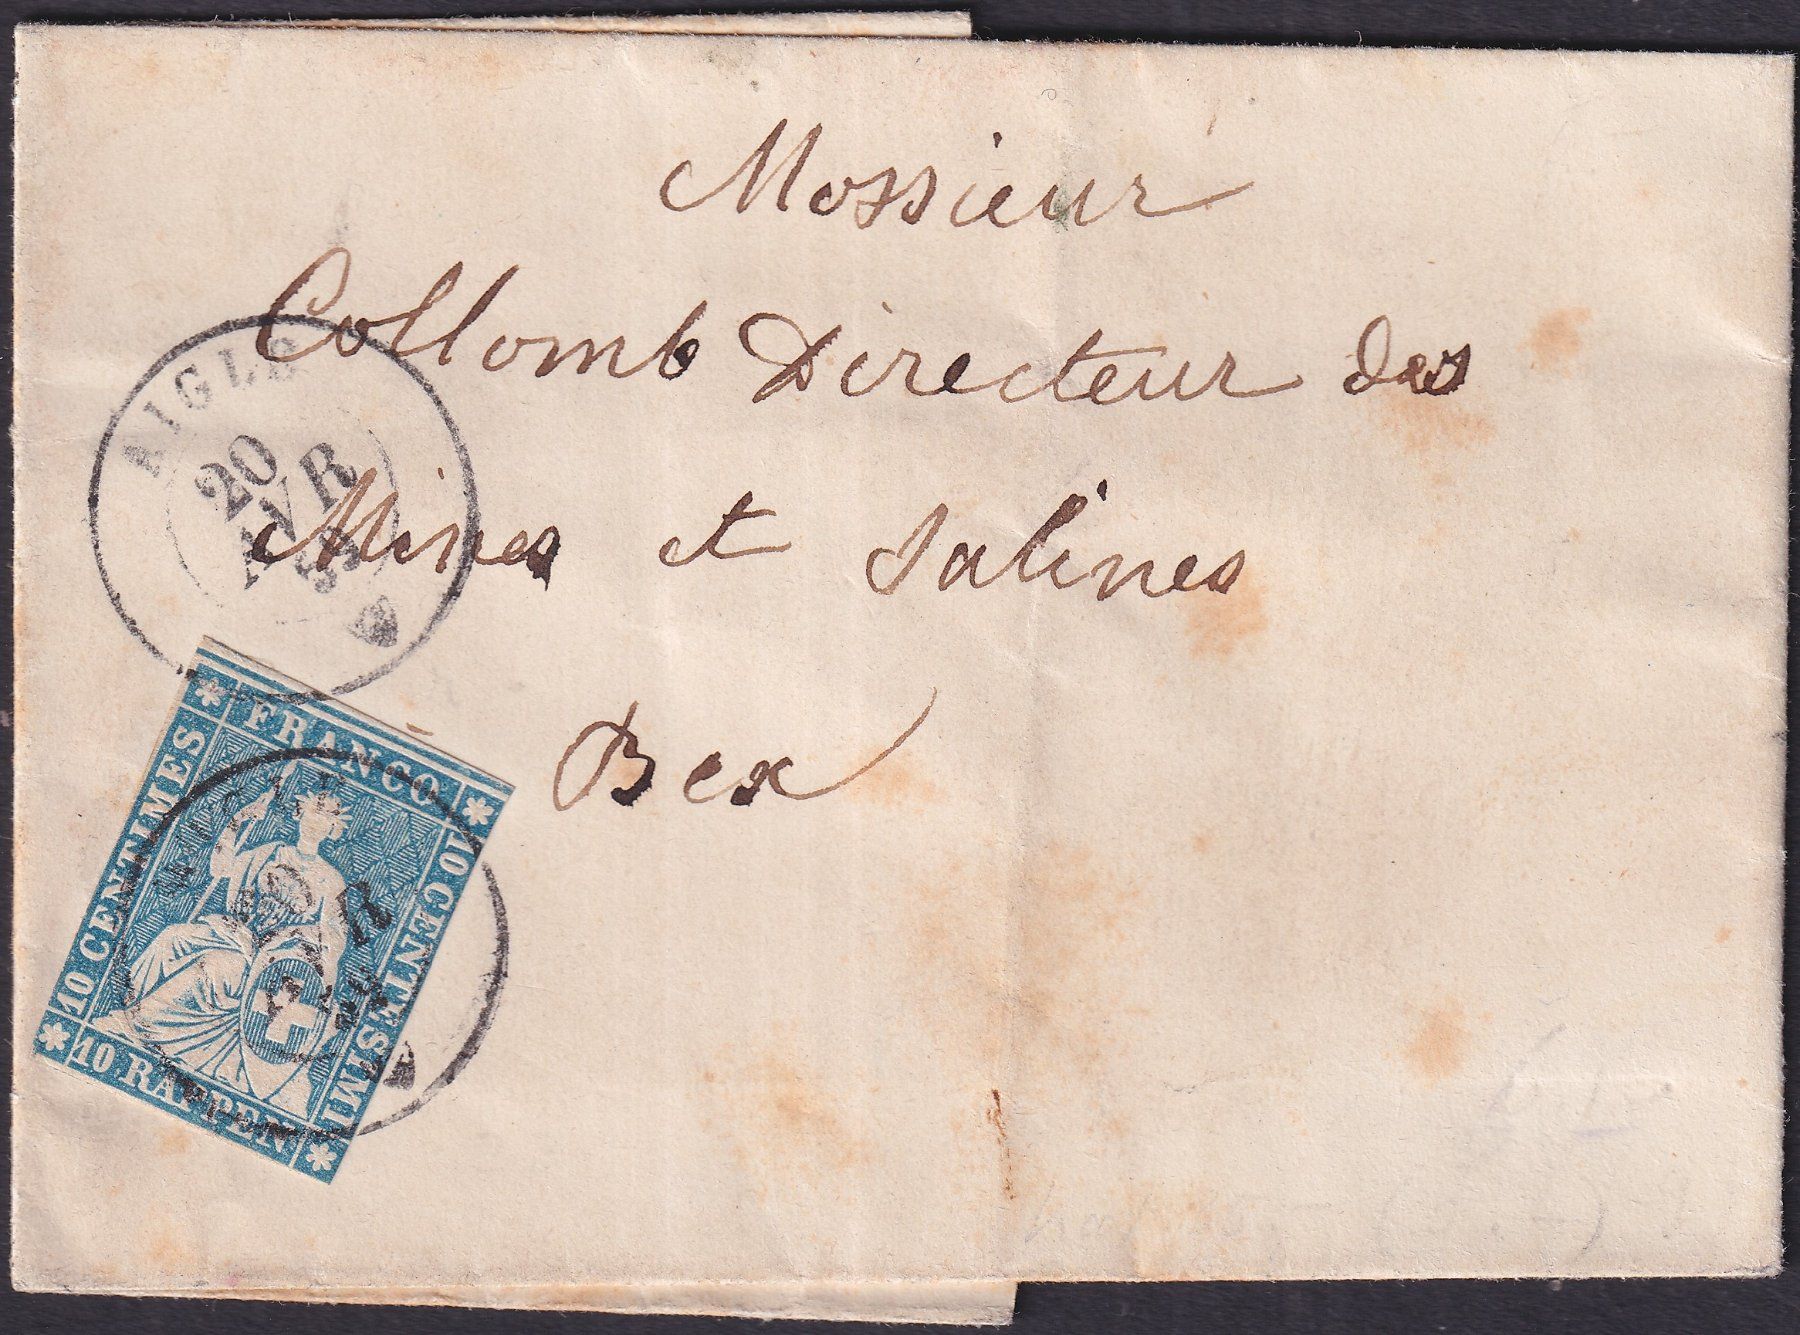 Mossieur
Collomb Directeur des
Mines et Salines
Bex
AIGLE
20
AVR
FRANCO
10 CENTIMES
10 CENTESIMI
10 RAPPEN
20
AVR